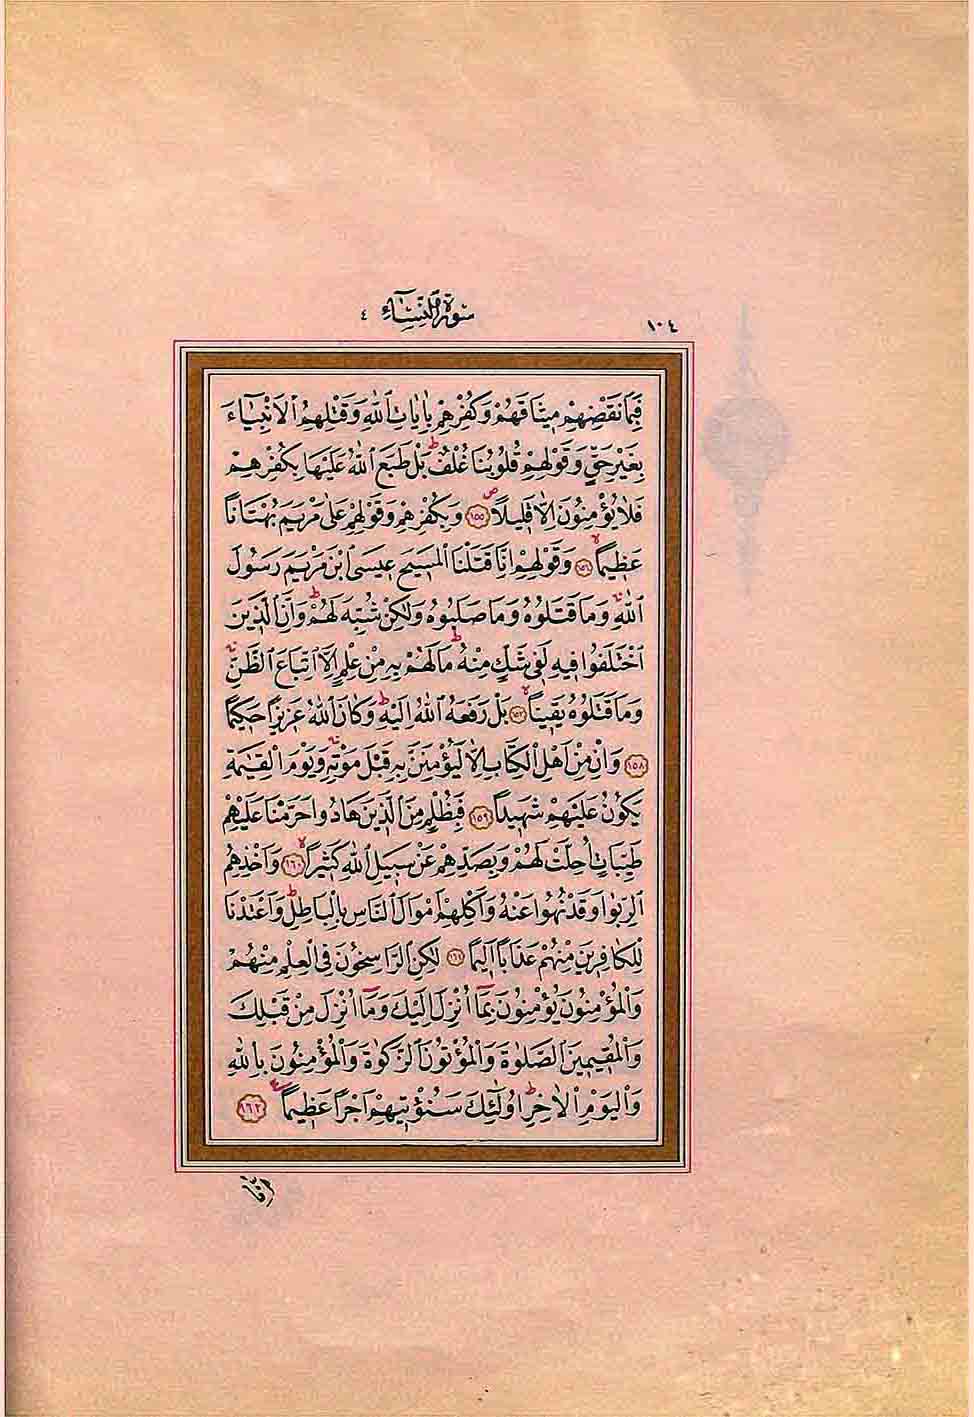 ١٠٤
سُورَةُ النِّسَاءِ ٤
فَبِمَا نَقْضِهِمْ مِيثَاقَهُمْ وَكُفْرِهِمْ بِاٰيَاتِ اللّٰهِ وَقَتْلِهِمُ الْاَنْبِيَٓاءَ
بِغَيْرِ حَقٍّ وَقَوْلِهِمْ قُلُوبُنَا غُلْفٌۜ بَلْ طَبَعَ اللّٰهُ عَلَيْهَا بِكُفْرِهِمْ
فَلَا يُؤْمِنُونَ اِلَّا قَلِيلًاۖ ﴿١٥٥﴾ وَبِكُفْرِهِمْ وَقَوْلِهِمْ عَلٰى مَرْيَمَ بُهْتَانًا
عَظِيمًاۙ ﴿١٥٦﴾ وَقَوْلِهِمْ اِنَّا قَتَلْنَا الْمَسِيحَ عِيسَى ابْنَ مَرْيَمَ رَسُولَ
اللّٰهِۚ وَمَا قَتَلُوهُ وَمَا صَلَبُوهُ وَلٰكِنْ شُبِّهَ لَهُمْۜ وَاِنَّ الَّذِينَ
اخْتَلَفُوا فِيهِ لَفِى شَكٍّ مِنْهُۜ مَا لَهُمْ بِهِ مِنْ عِلْمٍ اِلَّا اتِّبَاعَ الظَّنِّۚ
وَمَا قَتَلُوهُ يَقِينًاۙ ﴿١٥٧﴾ بَلْ رَفَعَهُ اللّٰهُ اِلَيْهِۜ وَكَانَ اللّٰهُ عَزِيزًا حَكِيمًا
﴿١٥٨﴾ وَاِنْ مِنْ اَهْلِ الْكِتَابِ اِلَّا لَيُؤْمِنَنَّ بِهِ قَبْلَ مَوْتِهِۚ وَيَوْمَ الْقِيٰمَةِ
يَكُونُ عَلَيْهِمْ شَهِيدًا ﴿١٥٩﴾ فَبِظُلْمٍ مِنَ الَّذِينَ هَادُوا حَرَّمْنَا عَلَيْهِمْ
طَيِّبَاتٍ اُحِلَّتْ لَهُمْ وَبِصَدِّهِمْ عَنْ سَبِيلِ اللّٰهِ كَثِيرًاۙ ﴿١٦٠﴾ وَاَخْذِهِمُ
الرِّبٰوا وَقَدْ نُهُوا عَنْهُ وَاَكْلِهِمْ اَمْوَالَ النَّاسِ بِالْبَاطِلِۜ وَاَعْتَدْنَا
لِلْكَافِرِينَ مِنْهُمْ عَذَابًا اَلِيمًا ﴿١٦١﴾ لٰكِنِ الرَّاسِخُونَ فِى الْعِلْمِ مِنْهُمْ
وَالْمُؤْمِنُونَ يُؤْمِنُونَ بِمَٓا اُنْزِلَ اِلَيْكَ وَمَٓا اُنْزِلَ مِنْ قَبْلِكَ
وَالْمُقِيمِينَ الصَّلٰوةَ وَالْمُؤْتُونَ الزَّكٰوةَ وَالْمُؤْمِنُونَ بِاللّٰهِ
وَالْيَوْمِ الْاٰخِرِۜ اُولٰٓئِكَ سَنُؤْتِيهِمْ اَجْرًا عَظِيمًا ﴿١٦٢﴾ ع
اِنَّا